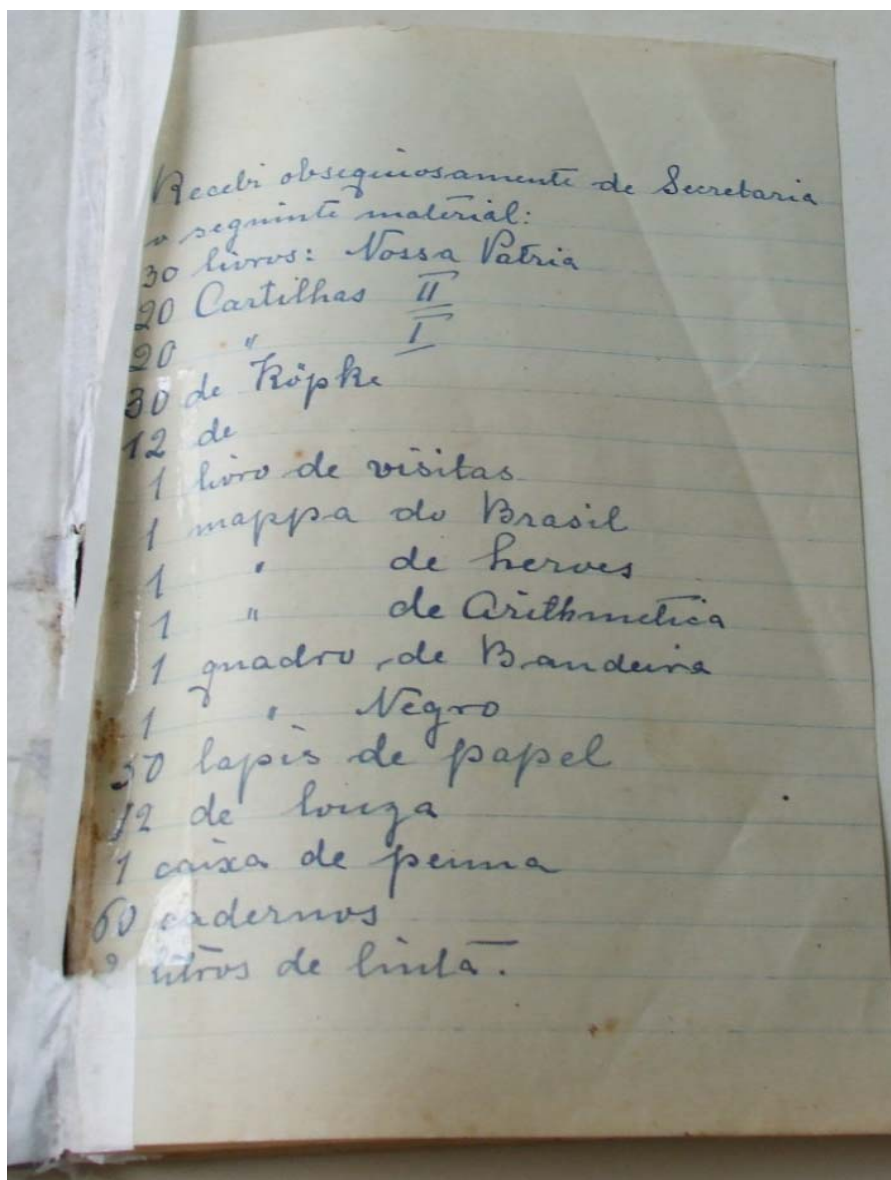 Recebi obsequiosamente de Secretaria
o seguinte material:
30 livros: Nossa Patria
20 Cartilhas II
20 " I
30 de Köpke
12 de
1 livro de visitas
1 mappa do Brasil
1 " de heroes
1 " de Arithmetica
1 quadro de Bandeira
1 " Negro
50 lapis de papel
12 de louza
1 caixa de penna
60 cadernos
litros de tinta.